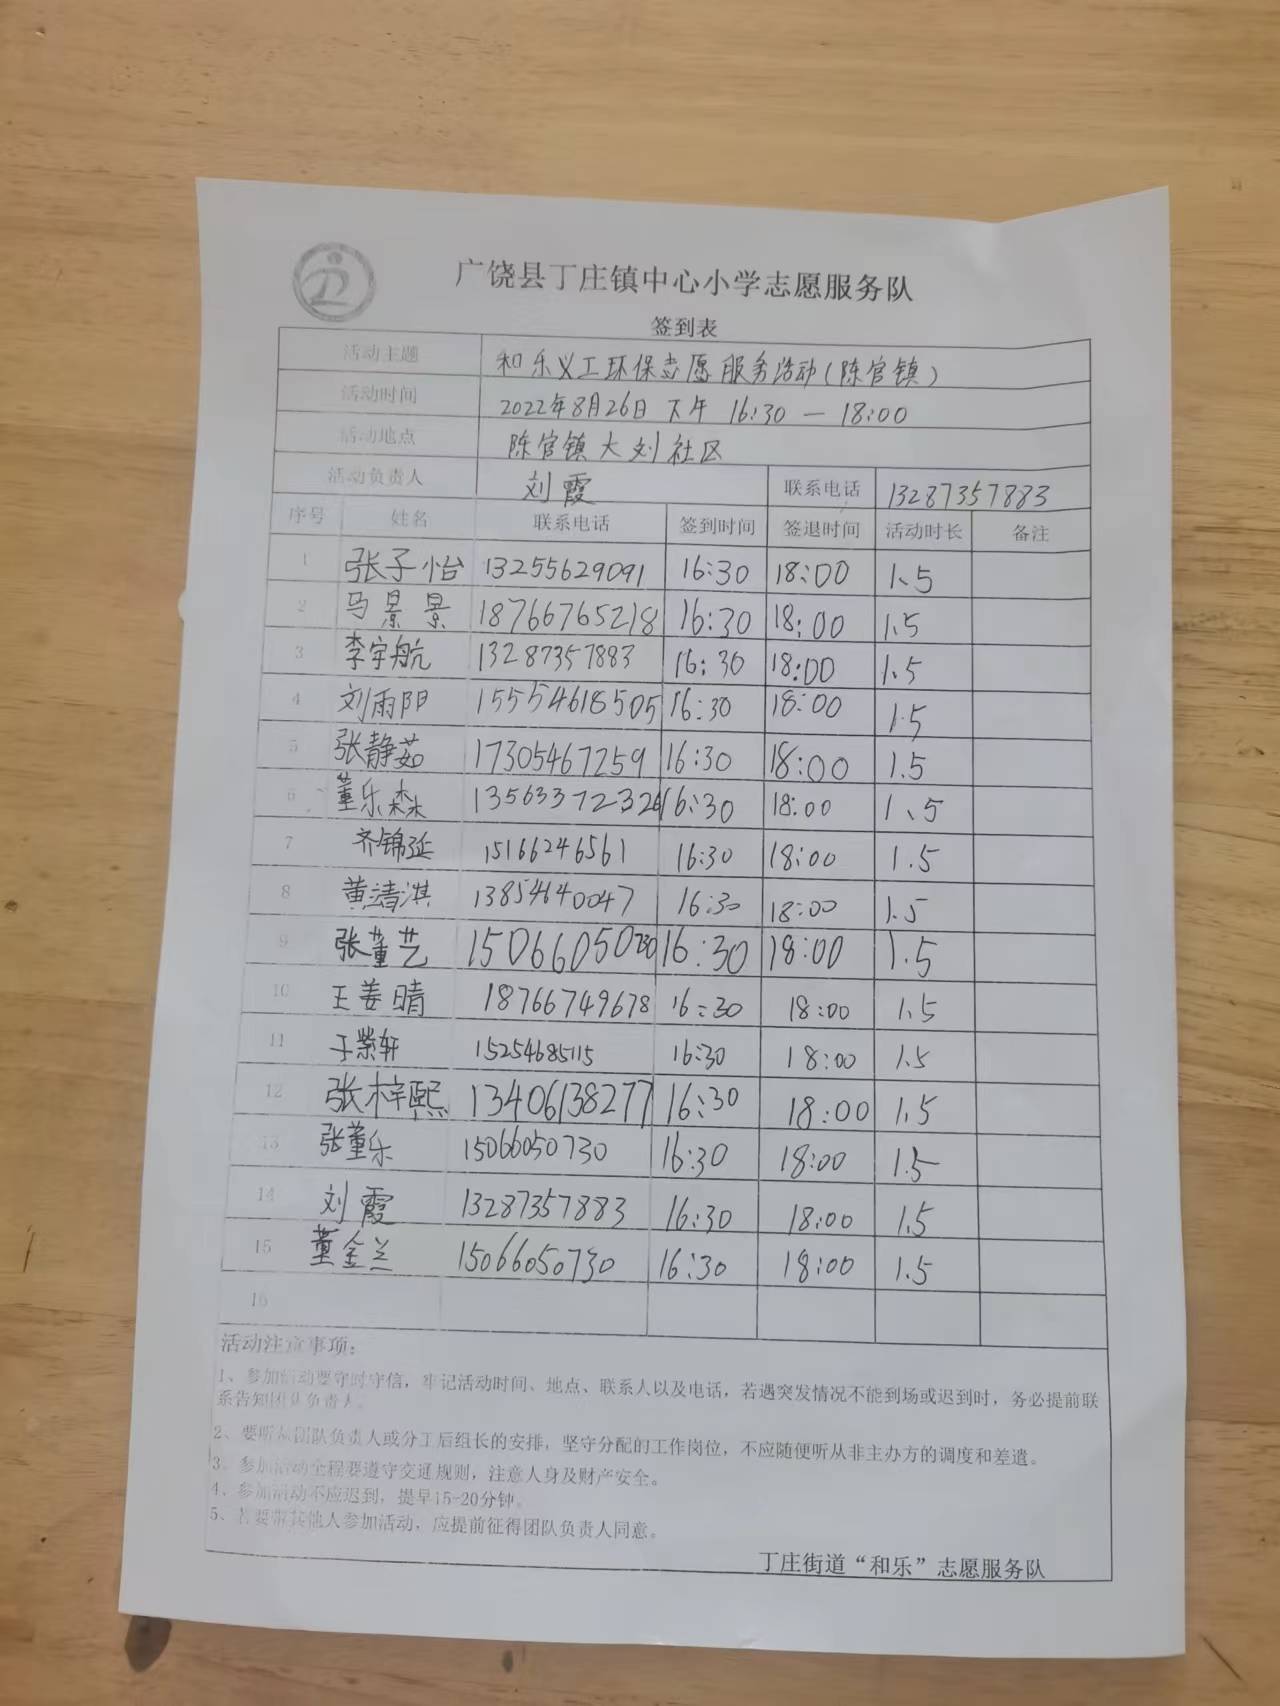 广饶县丁庄镇中心小学志愿服务队
签到表
活动主题 和乐义工环保志愿服务活动(陈官镇)
活动时间 2022年8月26日下午 16:30 — 18:00
活动地点 陈官镇大刘社区
活动负责人 刘霞 联系电话 13287357883
序号 姓名 联系电话 签到时间 签退时间 活动时长 备注
1 张子怡 13255629091 16:30 18:00 1.5
2 马景景 18766765218 16:30 18:00 1.5
3 李宇航 13287357883 16:30 18:00 1.5
4 刘雨阳 15554618505 16:30 18:00 1.5
5 张静茹 17305467259 16:30 18:00 1.5
6 董乐森 13563372326 16:30 18:00 1.5
7 齐锦延 15166246561 16:30 18:00 1.5
8 黄靖淇 13854640047 16:30 18:00 1.5
9 张董艺 15066050730 16:30 18:00 1.5
10 王姜晴 18766749678 16:30 18:00 1.5
11 于紫轩 15254685115 16:30 18:00 1.5
12 张梓熙 13406138277 16:30 18:00 1.5
13 张董乐 15066050730 16:30 18:00 1.5
14 刘霞 13287357883 16:30 18:00 1.5
15 董金兰 15066050730 16:30 18:00 1.5
16
活动注意事项:
1、参加活动要守时守信，牢记活动时间、地点、联系人以及电话，若遇突发情况不能到场或迟到时，务必提前联
系告知团队负责人。
2、要听从团队负责人或分工后组长的安排，坚守分配的工作岗位，不应随便听从非主办方的调度和差遣。
3、参加活动全程要遵守交通规则，注意人身及财产安全。
4、参加活动不应迟到，提早15-20分钟。
5、若要带其他人参加活动，应提前征得团队负责人同意。
丁庄街道“和乐”志愿服务队